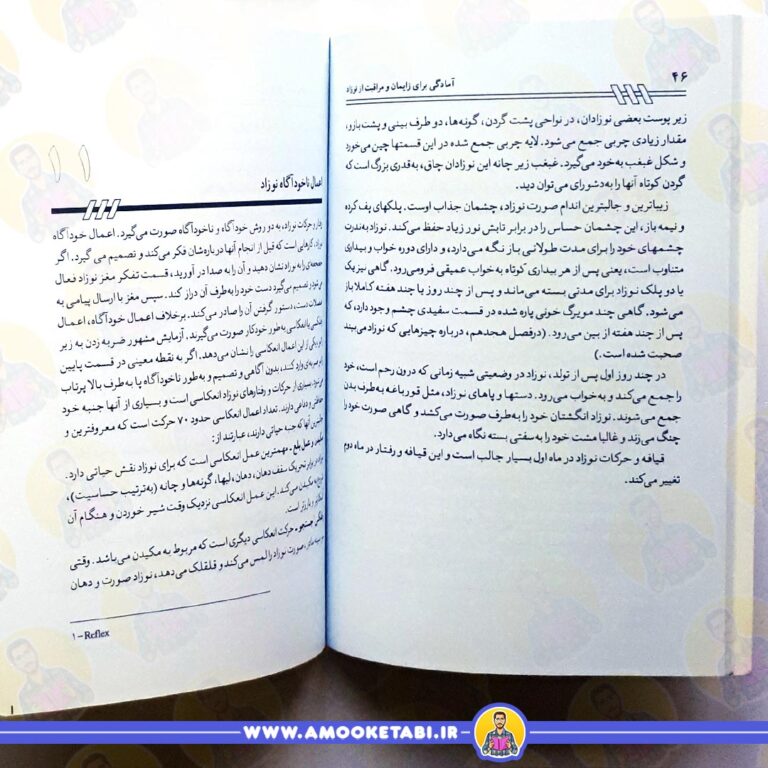 ۴۶
آمادگی برای زایمان و مراقبت از نوزاد
زیر پوست بعضی نوزادان، در نواحی پشت گردن، گونه‌ها، دو طرف بینی و پشت بازو،
مقدار زیادی چربی جمع می‌شود. لایه چربی جمع شده در این قسمتها چین می‌خورد
و شکل غبغب به‌خود می‌گیرد. غبغب زیر چانه این نوزادان چاق، به‌قدری بزرگ است که
گردن کوتاه آنها را به‌دشواری می‌توان دید.
زیباترین و جالبترین اندام صورت نوزاد، چشمان جذاب اوست. پلکهای پف کرده
و نیمه باز، این چشمان حساس را در برابر تابش نور زیاد حفظ می‌کند. نوزاد به‌ندرت
چشمهای خود را برای مدت طولانی باز نگه می‌دارد، و دارای دوره خواب و بیداری
متناوب است، یعنی پس از هر بیداری کوتاه به خواب عمیقی فرو می‌رود. گاهی نیز یک
یا دو پلک نوزاد برای مدتی بسته می‌ماند و پس از چند روز یا چند هفته کاملا باز
می‌شود. گاهی چند مویرگ خونی پاره شده در قسمت سفیدی چشم وجود دارد، که
پس از چند هفته از بین می‌رود. (در فصل هجدهم، درباره چیزهایی که نوزاد می‌بیند
صحبت شده است.)
در چند روز اول پس از تولد، نوزاد در وضعیتی شبیه زمانی که در رحم است، خود
را جمع می‌کند و به‌خواب می‌رود. دستها و پاهای نوزاد، مثل قورباغه به‌طرف بدن
جمع می‌شوند. نوزاد انگشتان خود را به‌طرف صورت می‌کشد و گاهی صورت خود را
چنگ می‌زند و غالبا مشت خود را به سفتی بسته نگاه می‌دارد.
قیافه و حرکات نوزاد در ماه اول بسیار جالب است و این قیافه و رفتار در ماه دوم
تغییر می‌کند.
۱۱
اعمال ناخودآگاه نوزاد
حرکات نوزاد، به دو روش خودآگاه و ناخودآگاه صورت می‌گیرد. اعمال خودآگاه
کارهایی است که قبل از انجام آنها درباره‌شان فکر می‌کند و تصمیم می گیرد. اگر
را به نوزاد نشان دهید و آن را به صدا در آورید، قسمت تفکر مغز نوزاد فعال
تصمیم می‌گیرد دست خود را به‌طرف آن دراز کند. سپس مغز با ارسال پیامی به
عضلات دست، دستور گرفتن آن را صادر می‌کند. برخلاف اعمال خودآگاه، اعمال
انعکاسی به‌طور خودکار صورت می‌گیرند. آزمایش مشهور ضربه زدن به زیر
یکی از این اعمال انعکاسی را نشان می‌دهد. اگر به نقطه معینی در قسمت پایین
وارد کند، بدون آگاهی و تصمیم و به‌طور ناخودآگاه پا به‌طرف بالا پرتاب
می‌شود. بسیاری از حرکات و رفتارهای نوزاد انعکاسی است و بسیاری از آنها جنبه
و دفاعی دارند. تعداد اعمال انعکاسی حدود ۷۰ حرکت است که معروفترین و
آنها که جنبه حیاتی دارند، عبارتند از:
عمل بلع ـ مهمترین عمل انعکاسی است که برای نوزاد نقش حیاتی دارد.
در برابر تحریک سقف دهان، دهان، لبها، گونه‌ها و چانه (به‌ترتیب حساسیت)،
به مکیدن می‌کند. این عمل انعکاسی نزدیک وقت شیر خوردن و هنگام آن
بارزتر است.
جستجو ـ حرکت انعکاسی دیگری است که مربوط به مکیدن می‌باشد. وقتی
صورت نوزاد را لمس می‌کند و قلقلک می‌دهد، نوزاد صورت و دهان
۱ – Reflex
WWW.AMOOKETABI.IR